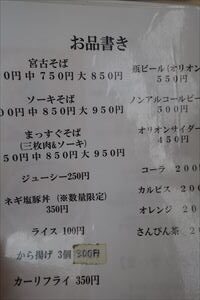 お品書き
宮古そば
0円 中 750円 大 850円
ソーキそば
00円 中 850円 大 950円
まっすぐそば
(三枚肉&ソーキ)
50円 中 850円 大 950円
ジューシー250円
ネギ塩豚丼 (※数量限定)
350円
ライス 100円
から揚げ 3個 300円
カーリフライ 350円
瓶ビール(オリオン
550円
ノンアルコールビー
500円
オリオンサイダー
450円
コーラ 200
カルピス 200
オレンジ 200
さんぴん茶 200